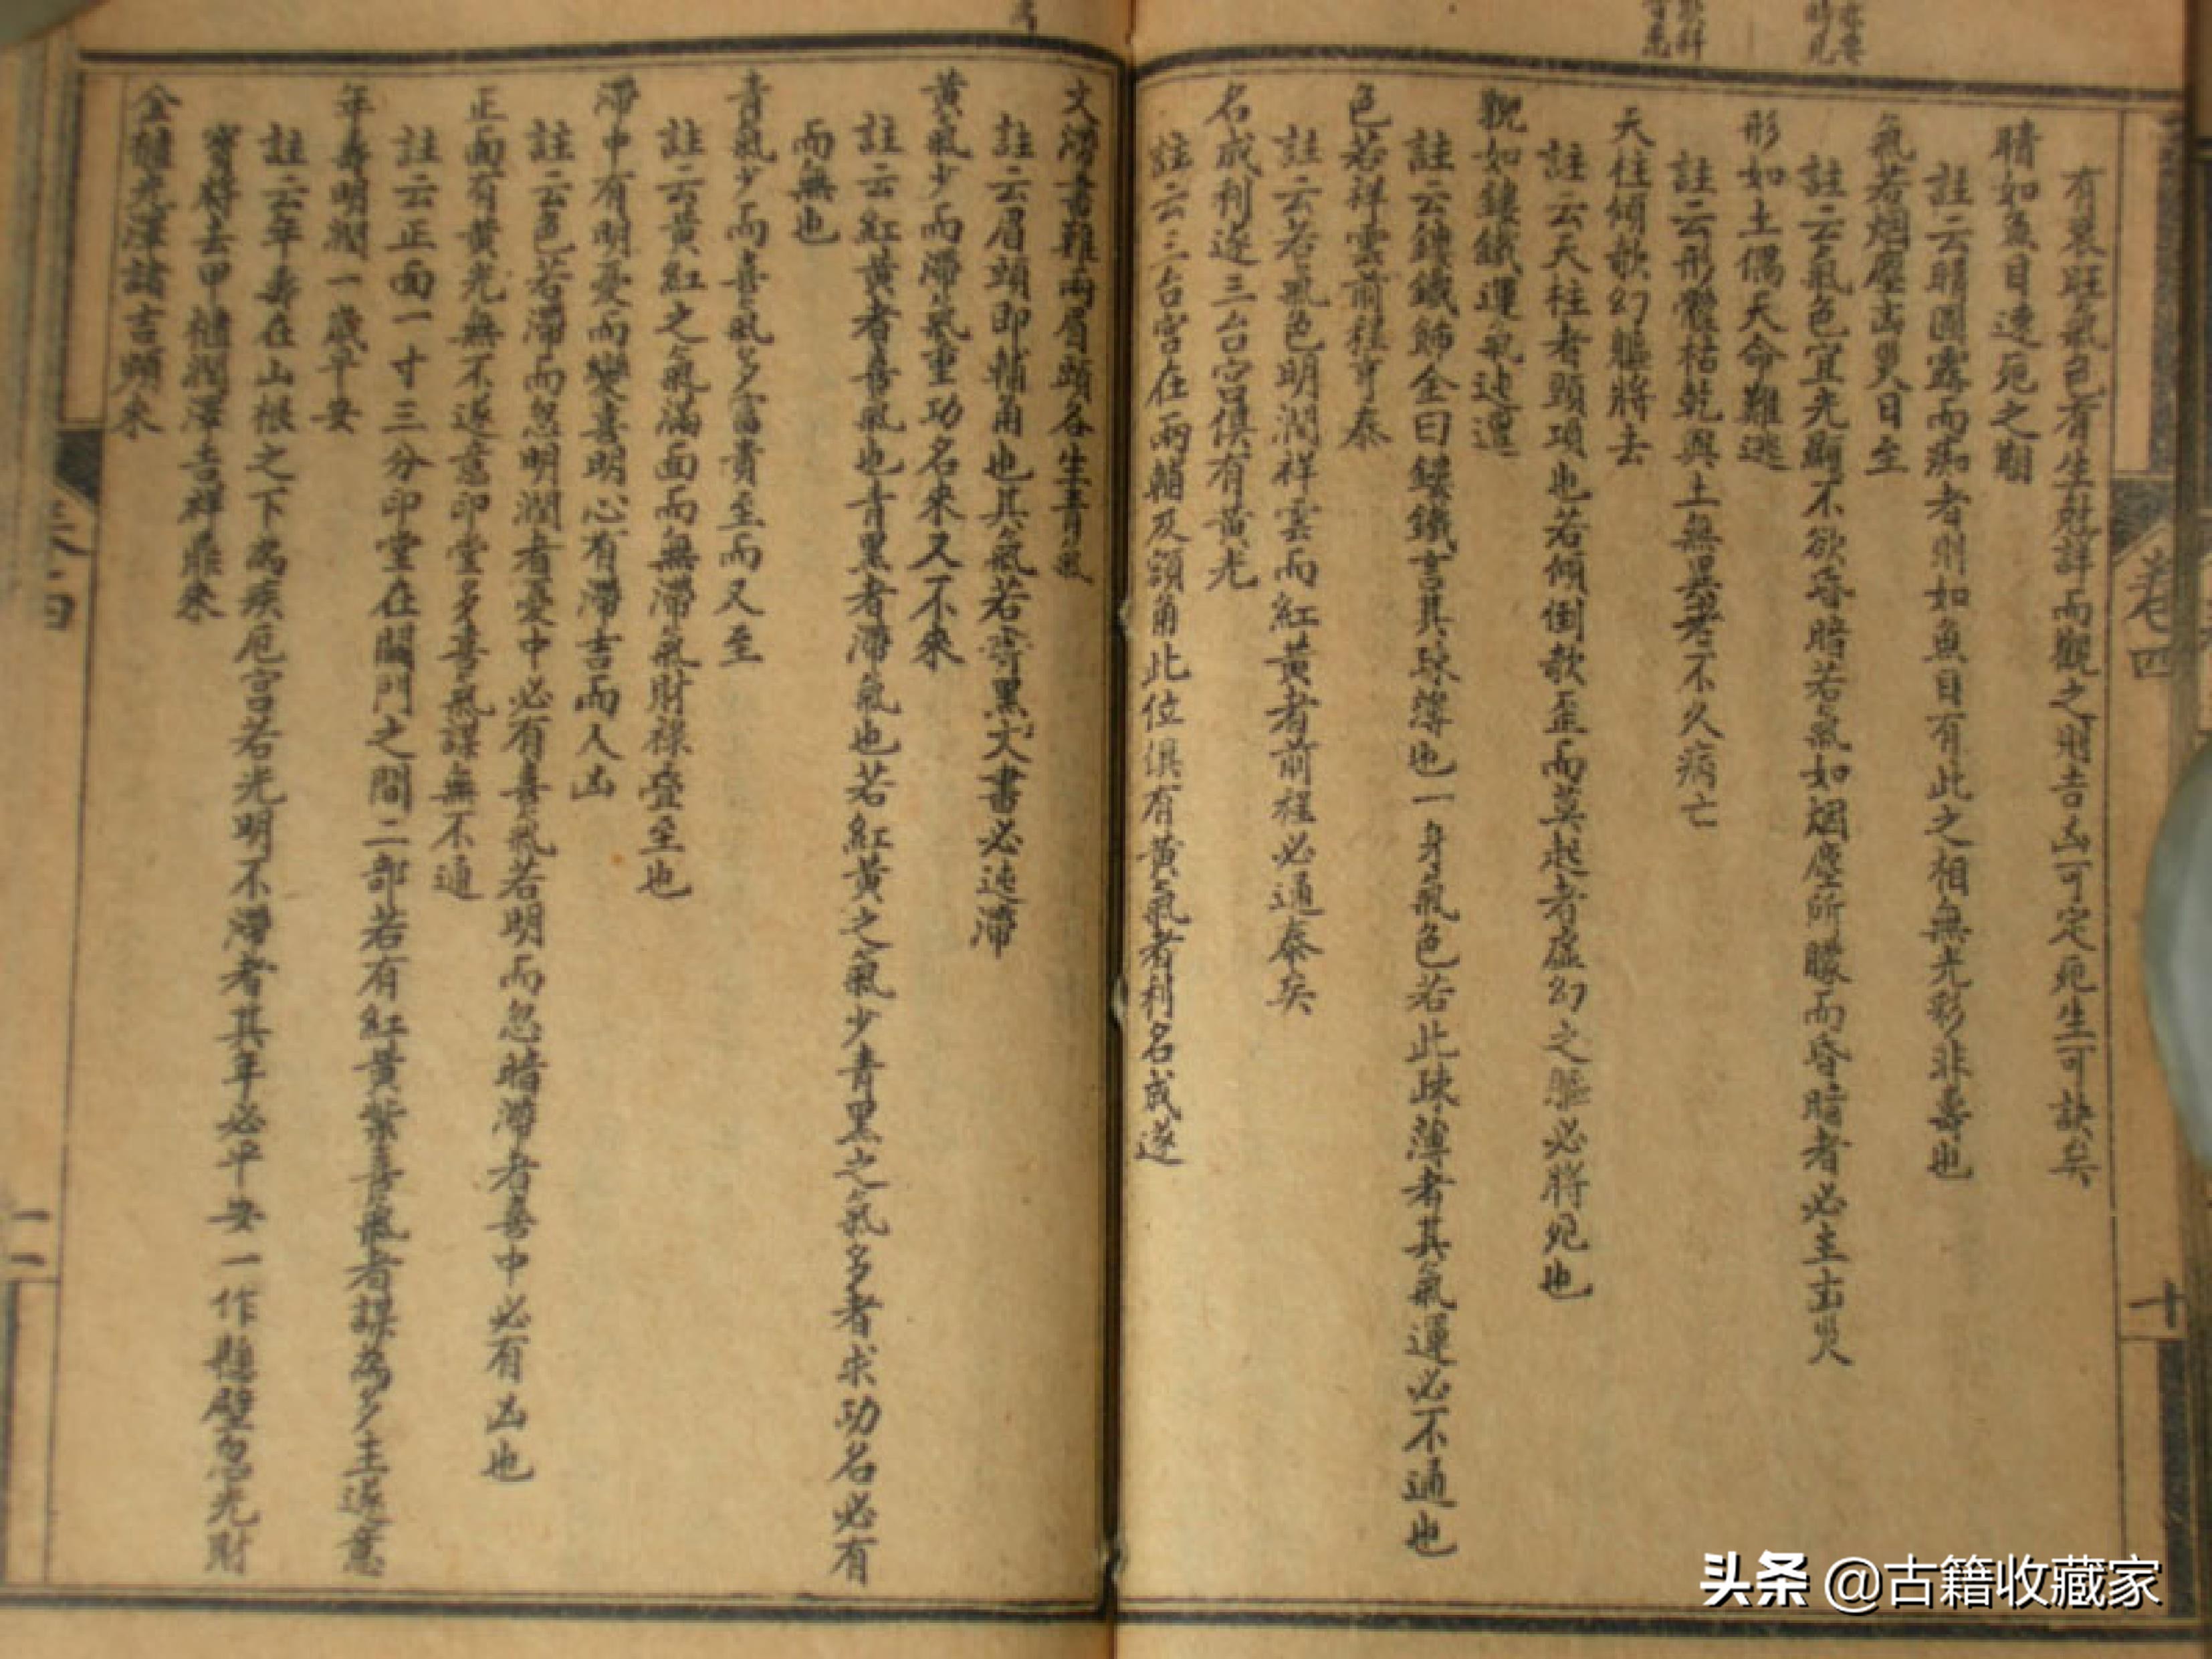 有衰旺氣色有生尅詳而觀之則吉凶可定死生可訣矣
睛如魚目速死之期
註云睛圓露而痴者則如魚目有此之相無光彩非壽也
氣若烟塵凶災日至
註云氣色宜光顯不欲昏暗若氣如烟塵所朦而昏暗者必主凶災
形如土偶天命難逃
註云形體枯乾與土無異者不久病亡
天柱傾欹幻軀將去
註云天柱者頭項也若傾倒欹歪而莫起者虛幻之軀必將死也
貌如鏤鐵運氣迍邅
註云鏤鐵飾金曰鏤鐵言其疎薄也一身氣色若此疎薄者其氣運必不通也
色若祥雲前程亨泰
註云若氣色明潤祥雲而紅黃者前程必通泰矣
名成利遂三台宮俱有黃光
註云三台宮在兩輔及額角此位俱有黃氣者利名成遂
文滯書難兩眉頭各生青氣
註云眉頭即輔角也其氣若青黑文書必迍滯
黃氣少而滯氣重功名來又不來
註云紅黃者喜氣也青黑者滯氣也若紅黃之氣少青黑之氣多者求功名必有
而無也
青氣少而喜氣多富貴至而又至
註云黃紅之氣滿面而無滯氣財祿疊至也
滯中有明憂而變喜明心有滯吉而人凶
註云色若滯而忽明潤者憂中必有喜氣若明而忽暗滯者喜中必有凶也
正面有黃光無不遂意印堂多喜氣謀無不通
註云正面一寸三分印堂在闕門之間二部若有紅黃紫喜氣者謀為多主遂意
年壽明潤一歲平安
註云年壽在山根之下為疾厄宮若光明不滯者其年必平安一作懸壁忽光財
寶將去甲櫃潤澤吉祥鼎來
金櫃光澤諸吉頻來
卷四
十
十一
头条 @古籍收藏家